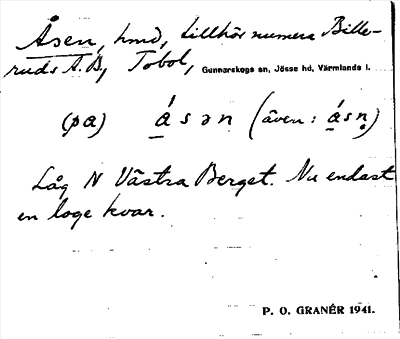 Åsen, hmd, tillhör numera Bille-
ruds A.B., Tobol, Gunnarskogs sn, Jösse hd, Värmlands l.
(på) á̱ s ə n (även: á̱ s n̥)
Låg N Västra Berget. Nu endast
en loge kvar.
P. O. GRANÉR 1941.